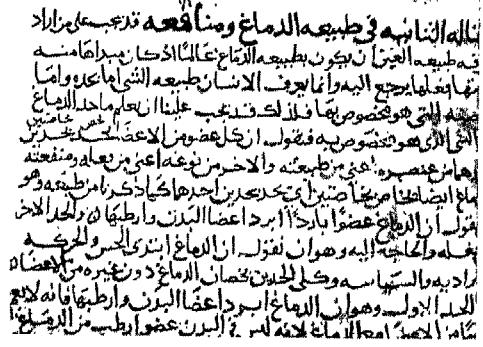 المقالة الثانية في طبيعة الدماغ ومنافعه قد يجب على من اراد
طبيعة العين ان يكون بطبيعة الدماغ عالما اذ كان مبداها منه
فعلها يرجع اليه وانما يعرف الانسان طبيعة الشي اما بحده واما
التي هو مخصوص بها فلذلك قد يجب علينا ان نعلم ما حد الدماغ
الشي الذي هو مخصوص به فنقول ان كل عضو من الاعضا يحد بحدين
من عنصره اعني من طبيعته والاخر من نوعه اعني من فعله ومنفعته
ايضا بحدين احدها كما ذكرنا من طبيعته وهو
نقول ان الدماغ عضوا باردا ابرد اعضا البدن وارطبها والحد الاخر
بفعله والحاجة اليه وهو ان نقول ان الدماغ ابتدى الحس والحركة
والسياسه وكلي الحدين يخصان الدماغ دون غيره من الاعضا
الحد الاول وهو ان الدماغ ابرد اعضا البدن وارطبها فانه
الدماغ لانه ليس في البدن عضو ارطب من الدماغ